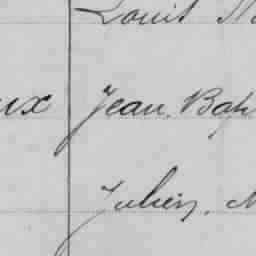 Louis
ux Jean, Bap
Julien, M